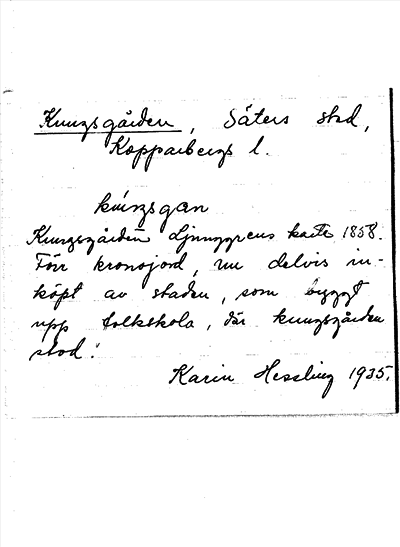 Kungsgården, Säters stad,
Kopparbergs l.
kúngsgan
Kungsgården Ljunggrens karta 1858.
Förr kronojord, nu delvis in-
köpt av staden, som byggt
upp folkskola, där kungsgården
stod.
Karin Hessling 1935.